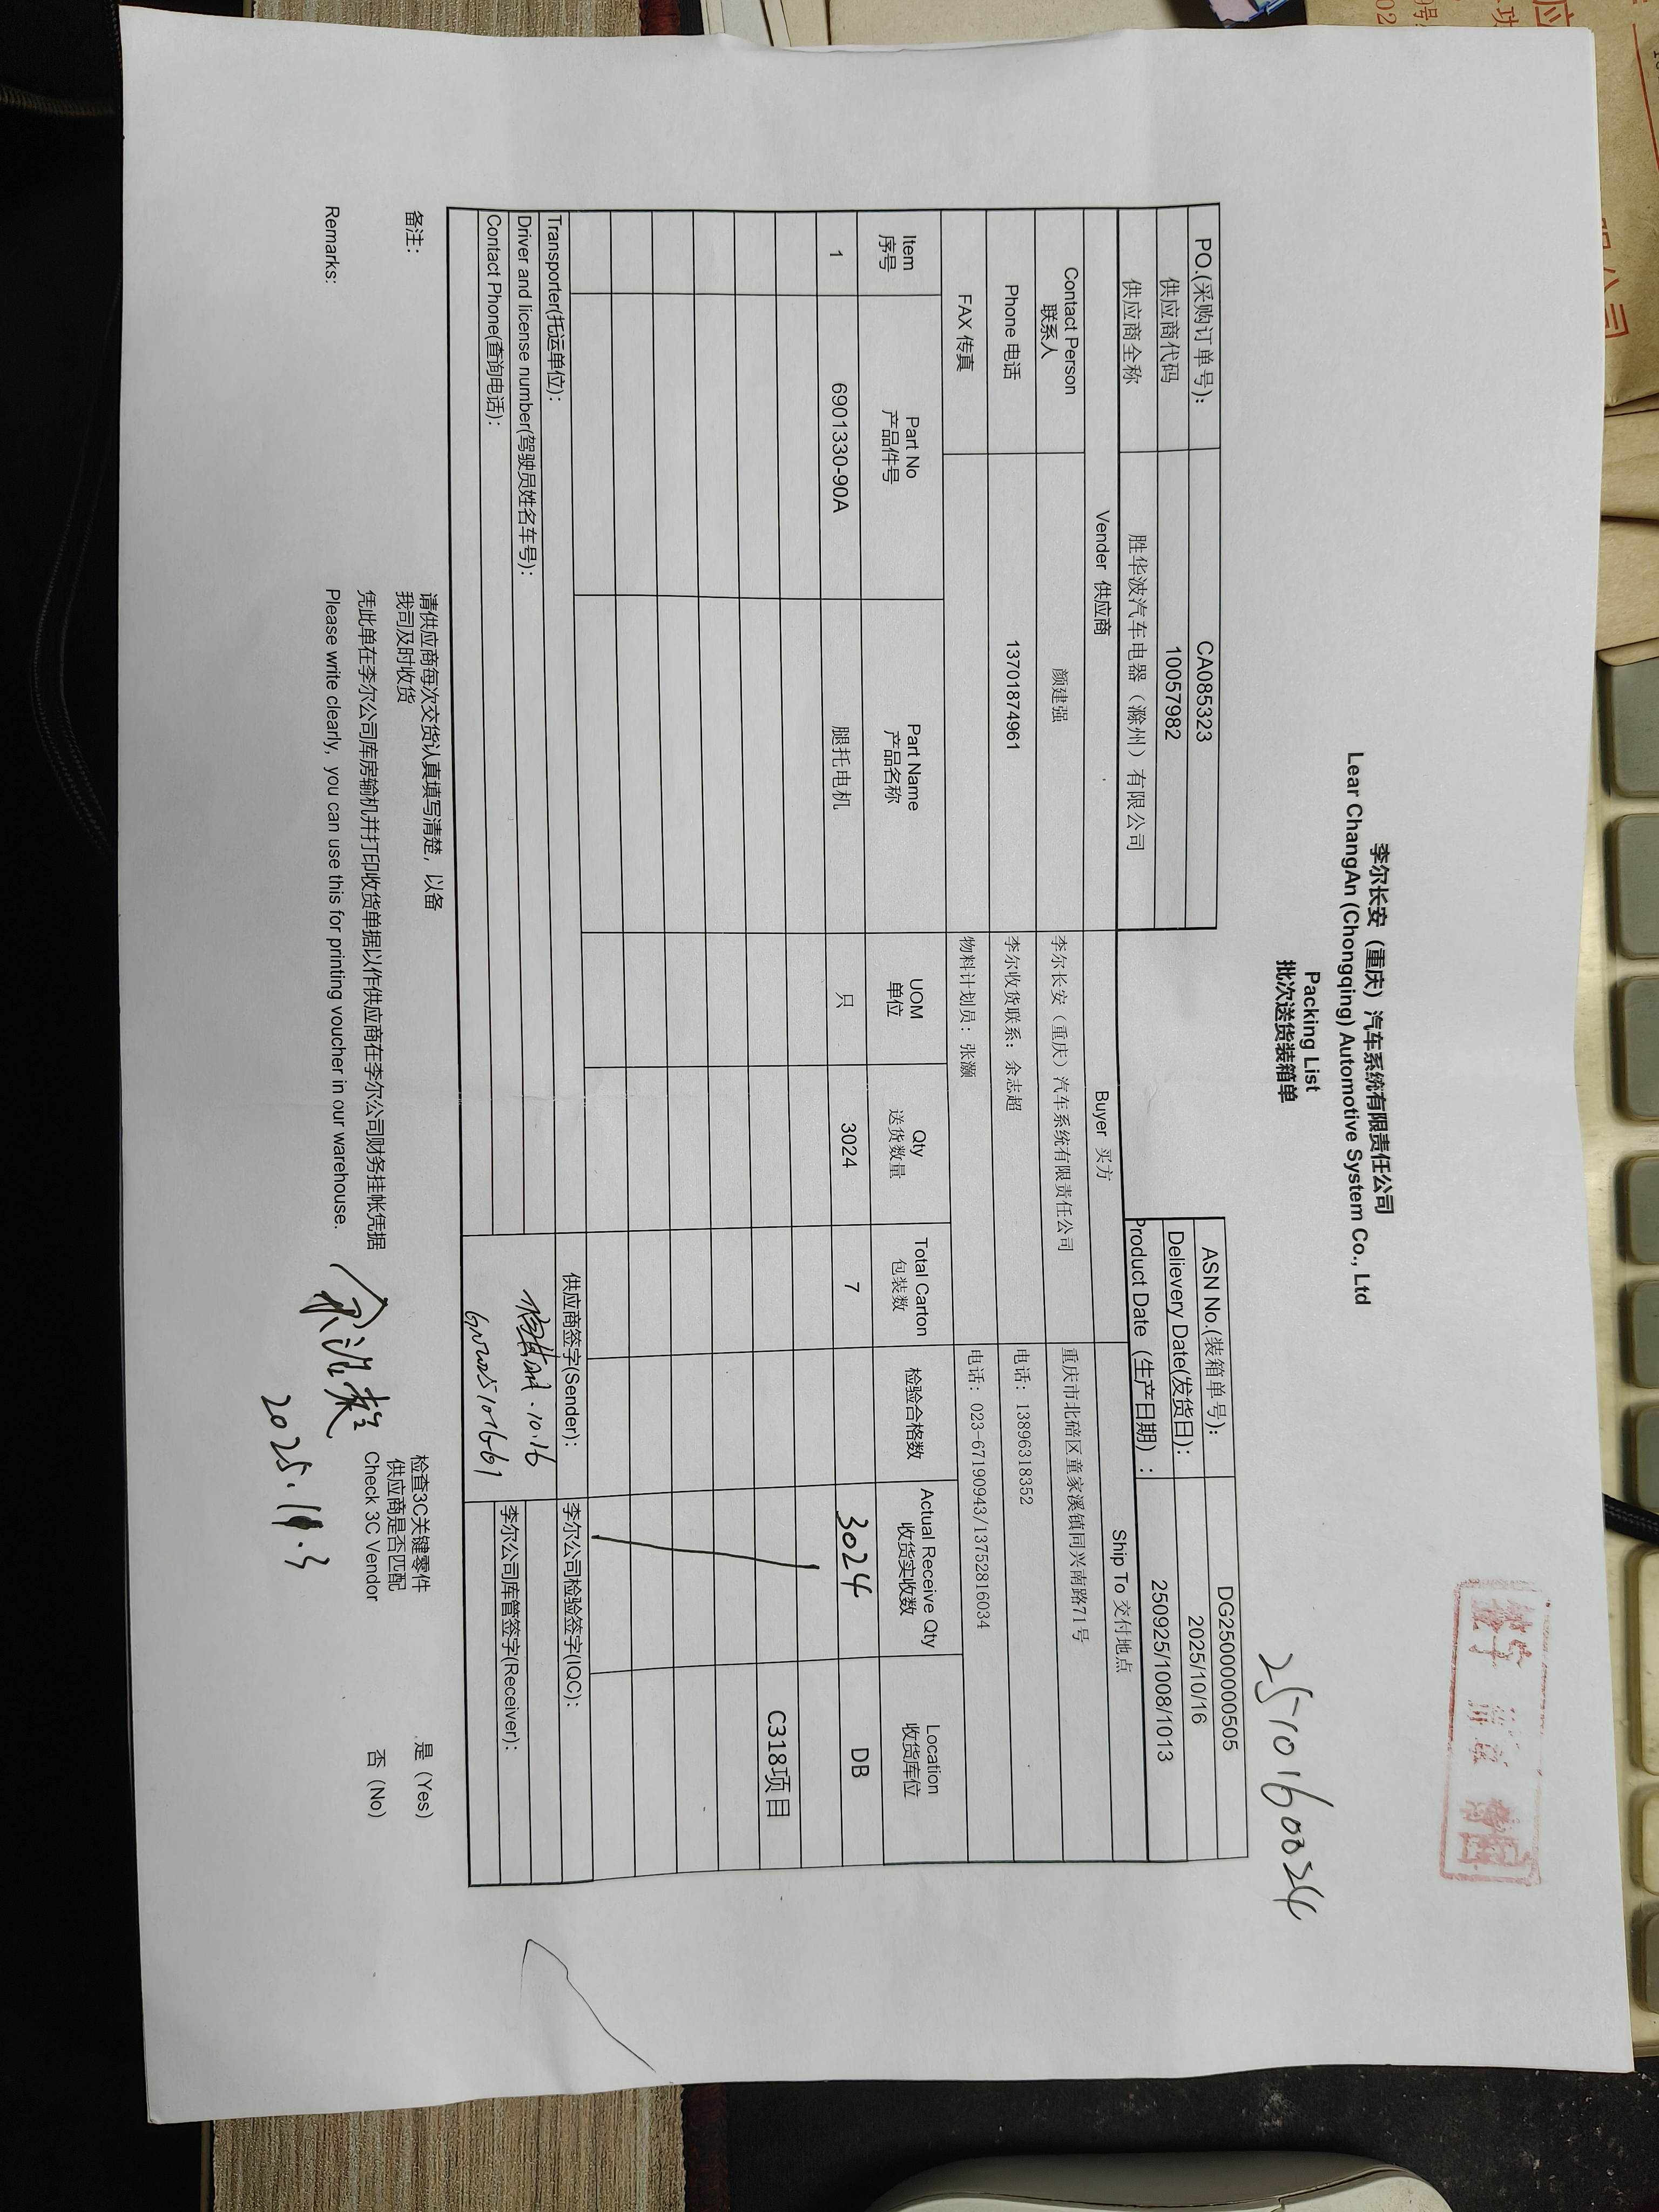 李尔长安（重庆）汽车系统有限责任公司
Lear ChangAn (Chongqing) Automotive System Co., Ltd
Packing List
批次送货装箱单
2510160024
PO.(采购订单号): CA085323 ASN No.(装箱单号): DG2500000505
供应商代码 10057982 Delievery Date(发货日): 2025/10/16
供应商全称 胜华波汽车电器（滁州）有限公司 Product Date（生产日期）: 250925/1008/1013
Vender 供应商 Buyer 买方 Ship To 交付地点
Contact Person 联系人 颜建强 李尔长安（重庆）汽车系统有限责任公司 重庆市北碚区童家溪镇同兴南路71号
Phone 电话 13701874961 李尔收货联系：余志超 电话：13896318352
FAX 传真 物料计划员：张灏 电话：023-67190943/13752816034
Item Part No Part Name UOM Qty Total Carton 检验合格数 Actual Receive Qty Location
序号 产品件号 产品名称 单位 送货数量 包装数 收货实收数 收货库位
1 6901330-90A 腿托电机 只 3024 7 3024 DB
C318项目
Transporter(托运单位): 供应商签字(Sender): 李尔公司检验签字(IQC):
Driver and license number(驾驶员姓名车号): 10.16
Contact Phone(查询电话): 李尔公司库管签字(Receiver):
备注: 请供应商每次交货认真填写清楚，以备
我司及时收货
检查3C关键零件 是（Yes）
供应商是否匹配
凭此单在李尔公司库房输机并打印收货单据以作供应商在李尔公司财务挂帐凭据
Check 3C Vendor 否（No）
Remarks: Please write clearly, you can use this for printing voucher in our warehouse.